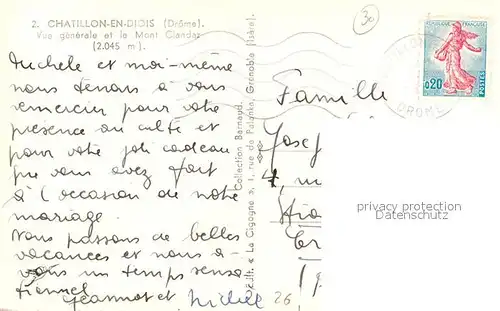 2. CHATILLON-EN-DIOIS (Drôme).
Vue générale et le Mont Glandaz
(2.045 m).
30
Michele et moi-même
nous tenons à vous
remercier pour votre
présence au culte et
pour votre joli cadeau
que vous avez fait
à l'occasion de notre
mariage.
Nous passons de belles
vacances et nous a-
vons un temps sensa
tionnel
Jeannot et Michèle 26
Edit. « La Cigogne », 1, rue de Palanka, Grenoble (Isère).
Collection Barnaud.
REPUBLIQUE FRANÇAISE
0,20
POSTES
DROME
Famille
Josep
7,
privacy protection
Datenschutz